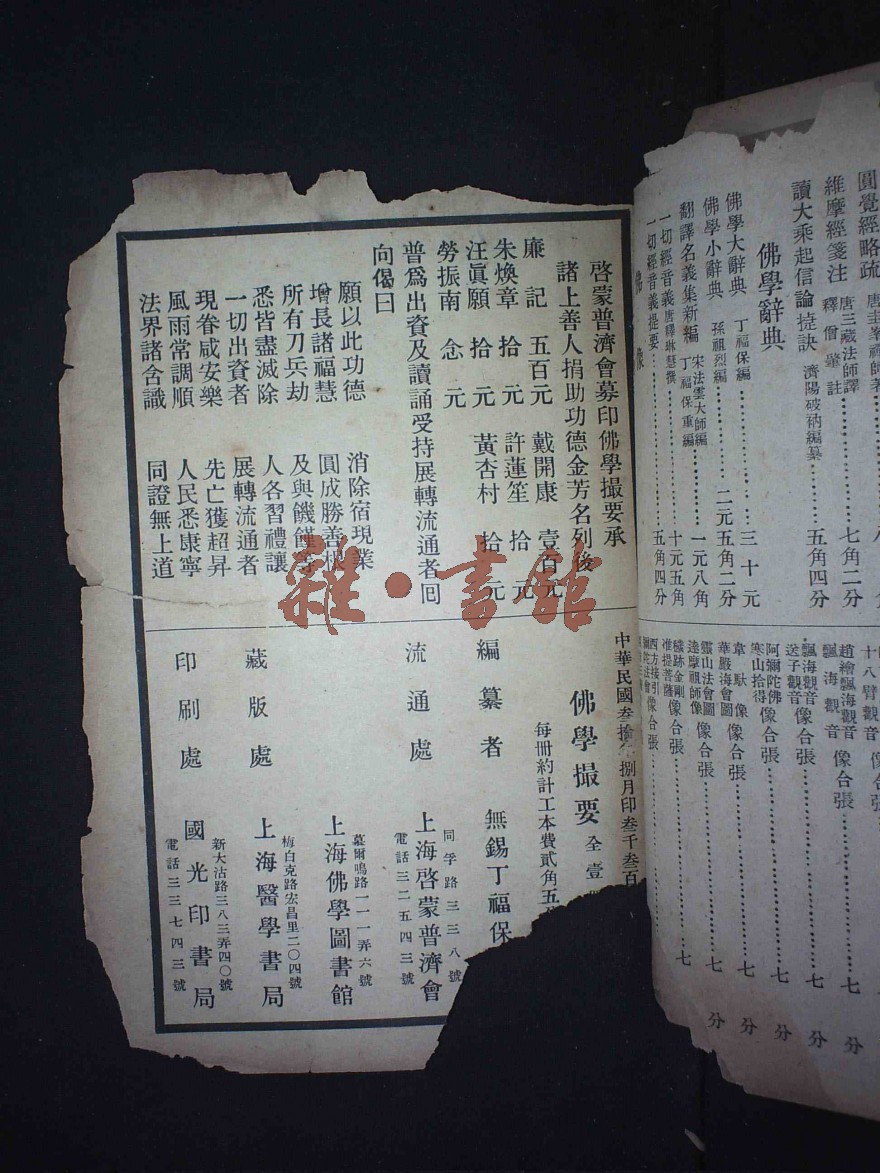 圓覺經略疏 唐圭峯禪師著
維摩經箋註 唐三藏法師譯 釋僧肇註 七角二分
讀大乘起信論捷訣 濟陽破衲編纂 五角四分
佛學辭典
佛學大辭典 丁福保編 三十元
佛學小辭典 孫祖烈編 二元五角二分
翻譯名義集新編 宋法雲大師編 丁福保重編 一元八角
一切經音義 唐釋琳慧撰 十元五角
一切經音義提要 五角四分
佛像
十八臂觀音
趙繪飄海觀音 像合張 七分
飄海觀音
飄海觀音 像合張 七分
送子觀音
阿彌陀佛 像合張 七分
寒山拾得
韋馱像 像合張 七分
華嚴海會圖
靈山法會圖 像合張 七分
達摩祖師像
穢跡金剛 像合張 七
准提菩薩
西方接引 像合張
啓蒙普濟會募印佛學撮要承
諸上善人捐助功德金芳名列後
廉記 五百元 戴開康 壹百元
朱煥章 拾元 許蓮笙 拾元
汪眞願 拾元 黃杏村 拾元
勞振南 念元
普爲出資及讀誦受持展轉流通者囘
向偈曰
願以此功德 消除宿現業
增長諸福慧 圓成勝善根
所有刀兵劫 及與饑饉等
悉皆盡滅除 人各習禮讓
一切出資者 展轉流通者
現眷咸安樂 先亡獲超昇
風雨常調順 人民悉康寧
法界諸含識 同證無上道
中華民國叁拾 捌月印叁千叁百
佛學撮要 全壹
每冊約計工本費貳角五
編纂者 無錫丁福保
流通處 上海啓蒙普濟會
同孚路三三八號
電話三二五四三號
上海佛學圖書館
慕爾鳴路一一一弄六號
藏版處 上海醫學書局
梅白克路宏昌里二〇四號
印刷處 國光印書局
新大沽路三八三弄四〇號
電話三三七四三號
雜·書館